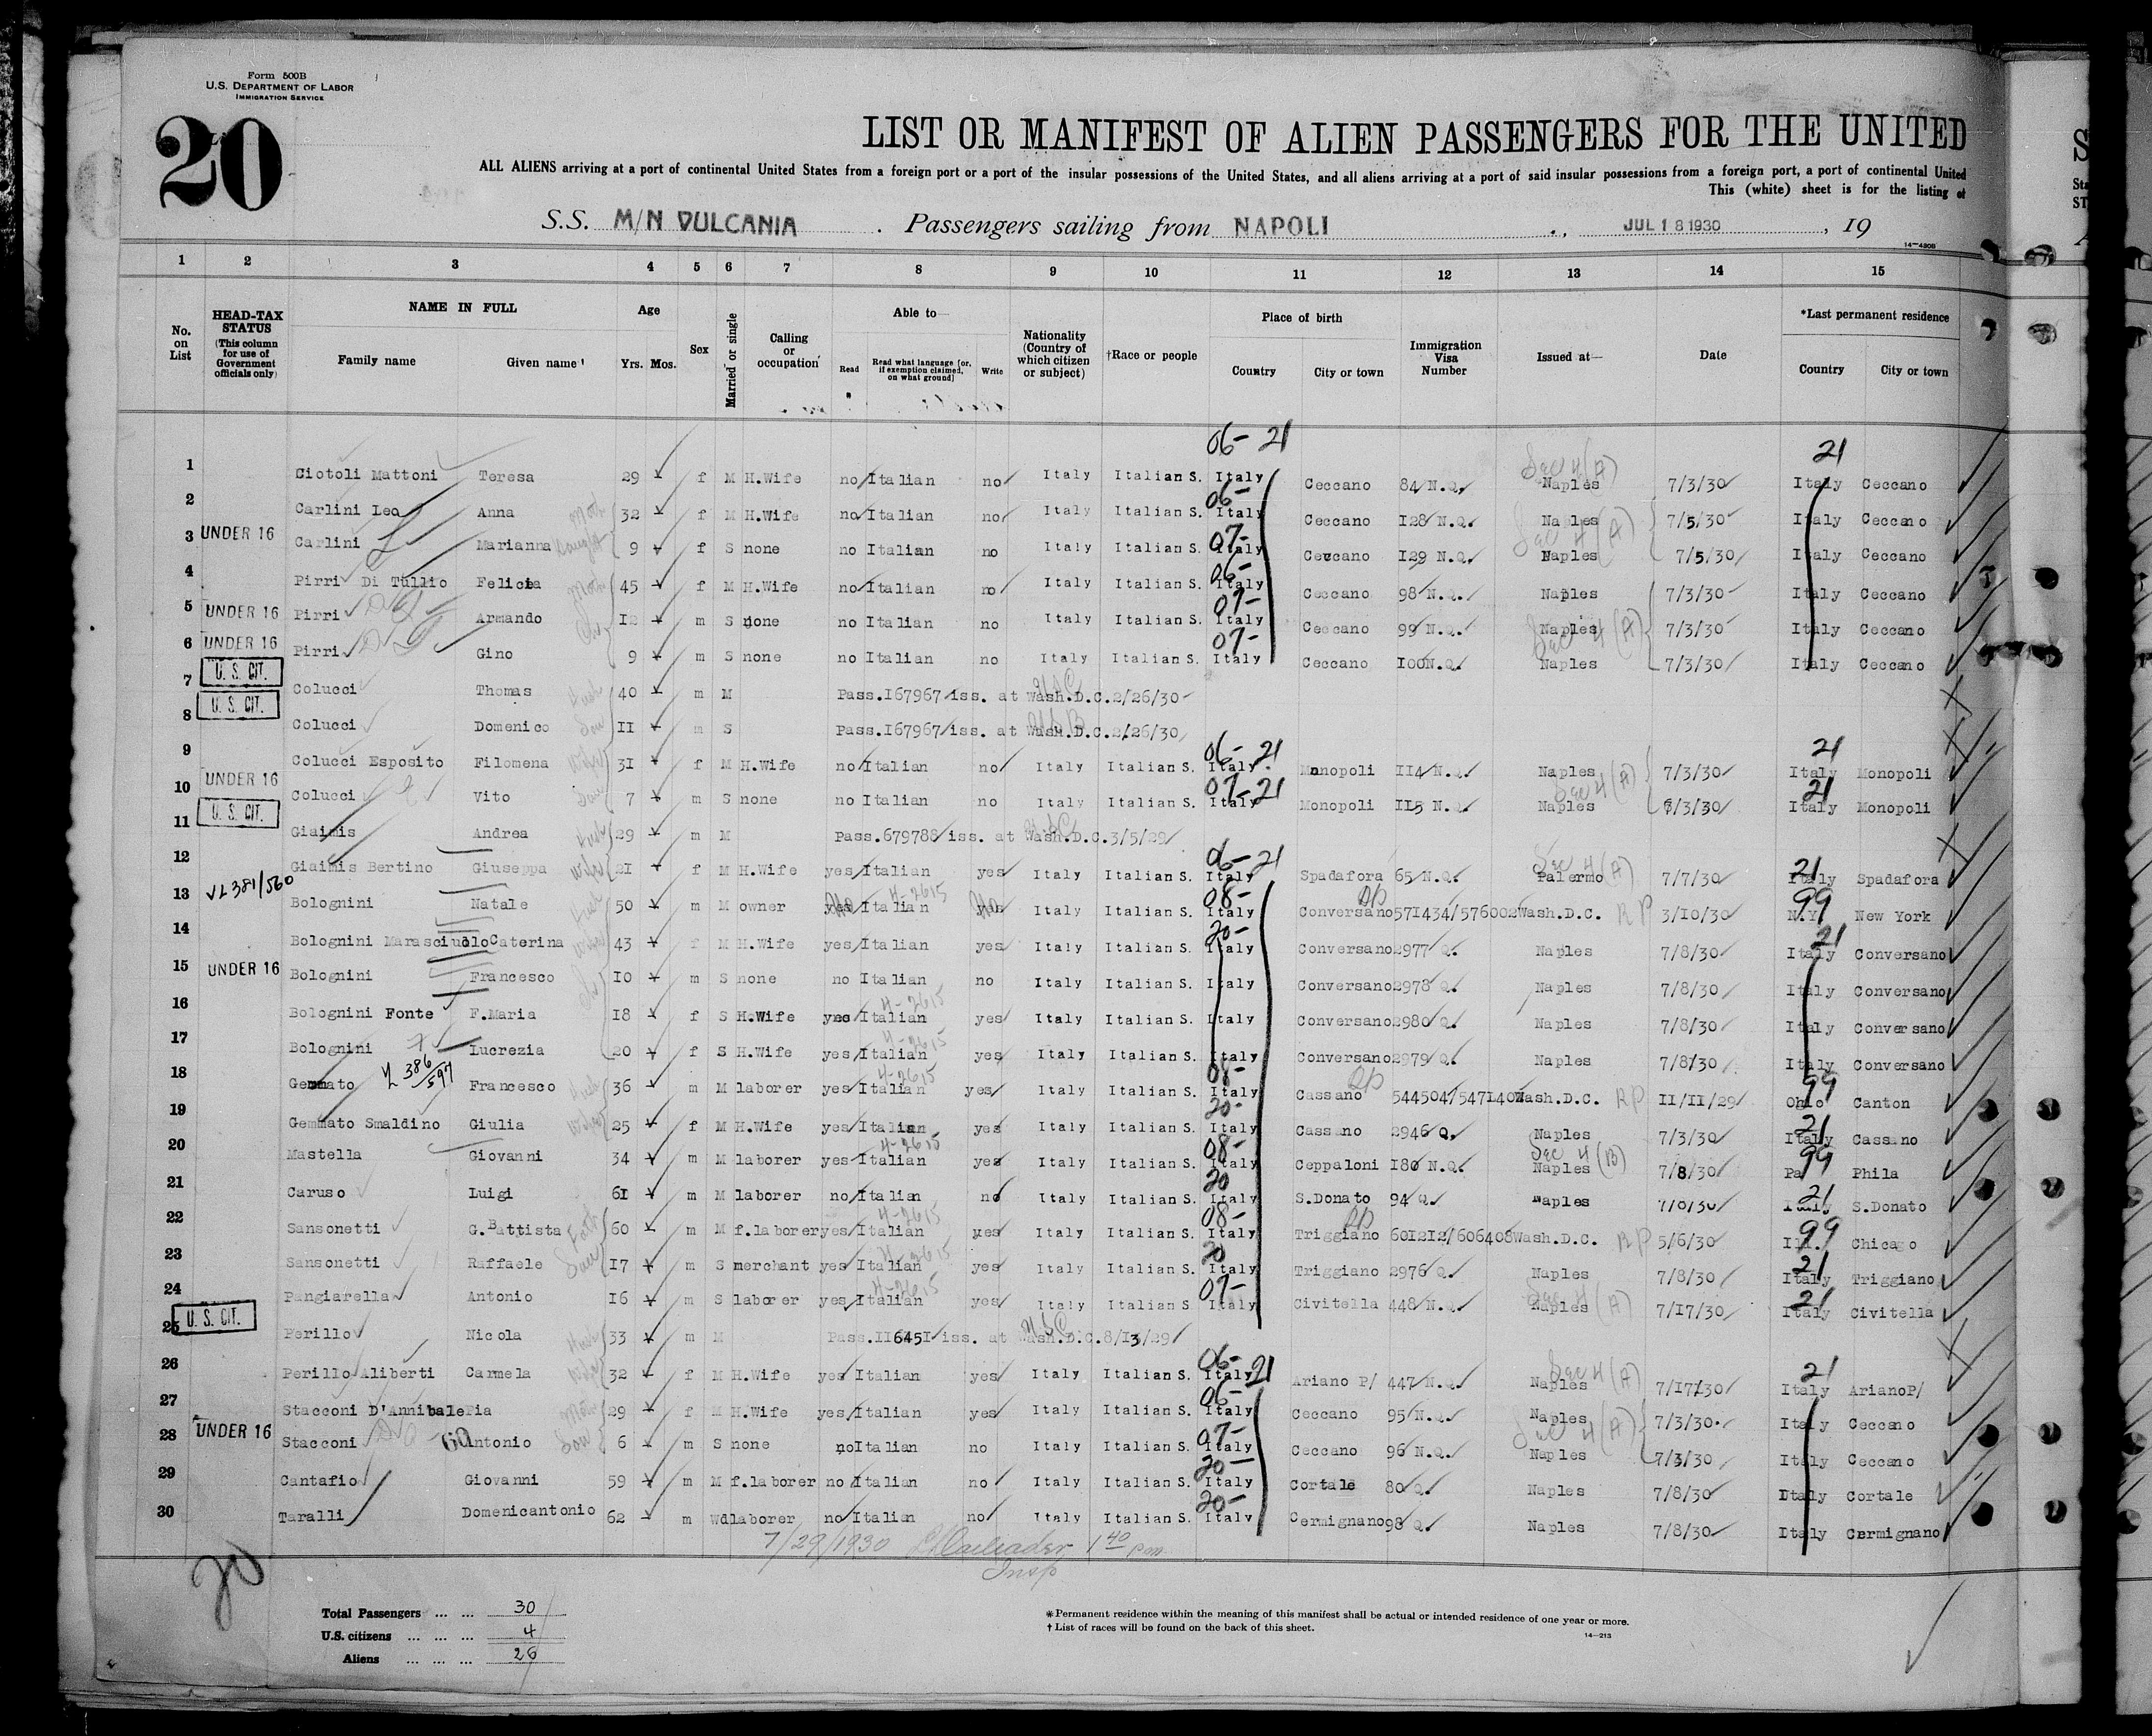 Form 500B
U.S. DEPARTMENT OF LABOR
IMMIGRATION SERVICE
20
LIST OR MANIFEST OF ALIEN PASSENGERS FOR THE UNITED
ALL ALIENS arriving at a port of continental United States from a foreign port or a port of the insular possessions of the United States, and all aliens arriving at a port of said insular possessions from a foreign port, a port of continental United
This (white) sheet is for the listing of
S.S. M/N VULCANIA . Passengers sailing from NAPOLI ., JUL 18 1930 , 19
1 2 3 4 5 6 7 8 9 10 11 12 13 14 15
No. on List
HEAD-TAX STATUS (This column for use of Government officials only)
NAME IN FULL Family name Given name
Age Yrs. Mos.
Sex
Married or single
Calling or occupation
Able to— Read Read what language [or, if exemption claimed, on what ground] Write
Nationality (Country of which citizen or subject)
†Race or people
Place of birth Country City or town
Immigration Visa Number
Issued at—
Date
*Last permanent residence Country City or town
06- 21 21
1 Ciotoli Mattoni Teresa 29 f M H.Wife no Italian no Italy Italian S. Italy Ceccano 84 N.Q. Sec 4 (A) Naples 7/3/30 Italy Ceccano
2 Carlini Leo Anna 32 f M H.Wife no Italian no Italy Italian S. 06- Italy Ceccano 128 N.Q. Naples 7/5/30 Italy Ceccano
3 UNDER 16 Carlini Marianna 9 f S none no Italian no Italy Italian S. 07- Italy Ceccano 129 N.Q. Sec 4 (A) Naples 7/5/30 Italy Ceccano
4 Pirri Di Tullio Felicia 45 f M H.Wife no Italian no Italy Italian S. 06- Italy Ceccano 98 N.Q. Naples 7/3/30 Italy Ceccano
5 UNDER 16 Pirri Armando I2 m S none no Italian no Italy Italian S. 07- Italy Ceccano 99 N.Q. Naples 7/3/30 Italy Ceccano
6 UNDER 16 Pirri Gino 9 m S none no Italian no Italy Italian S. 07- Italy Ceccano I00N.Q. Sec 4 (A) Naples 7/3/30 Italy Ceccano
7 U. S. CIT. Colucci Thomas 40 m M Pass.I67967 iss. at Wash.D.C.2/26/30
8 U. S. CIT. Colucci Domenico II m S Pass.I67967 iss. at Wash.D.C.2/26/30
9 Colucci Esposito Filomena 3I f M H.Wife no Italian no Italy Italian S. 06- 21 Italy Monopoli II4 N.Q. Naples 7/3/30 21 Italy Monopoli
10 UNDER 16 Colucci Vito 7 m S none no Italian no Italy Italian S. 07-21 Italy Monopoli II5 N.Q. Sec 4 (A) Naples 7/3/30 21 Italy Monopoli
11 U. S. CIT. Giaimis Andrea 29 m M Pass.679788 iss. at Wash.D.C.3/5/29
12 Giaimis Bertino Giuseppa 2I f M H.Wife yes Italian yes Italy Italian S. 06-21 Italy Spadafora 65 N.Q. Sec 4 (A) Palermo 7/7/30 21 Italy Spadafora
13 VL 381/560 Bolognini Natale 50 m M owner Italian 4-2615 Italy Italian S. 08- Italy Conversano 571434/576002 Wash.D.C. RP 3/10/30 99 N.Y. New York
14 Bolognini Marasciuolo Caterina 43 f M H.Wife yes Italian yes Italy Italian S. 20- Italy Conversano 2977 Q. Naples 7/8/30 21 Italy Conversano
15 UNDER 16 Bolognini Francesco I0 m S none no Italian no Italy Italian S. Italy Conversano 2978 Q. Naples 7/8/30 Italy Conversano
16 Bolognini Fonte F.Maria I8 f S H.Wife yes Italian 4-2615 yes Italy Italian S. Italy Conversano 2980 Q. Naples 7/8/30 Italy Conversano
17 Bolognini Lucrezia 20 f S H.Wife yes Italian 4-2615 yes Italy Italian S. Italy Conversano 2979 Q. Naples 7/8/30 Italy Conversano
18 Gemmato 386/597 Francesco 36 m M laborer yes Italian 4-2615 yes Italy Italian S. 08- Italy Cassano 544504/547140 Wash.D.C. RP II/II/29 99 Ohio Canton
19 Gemmato Smaldino Giulia 25 f M H.Wife yes Italian yes Italy Italian S. 20- Italy Cassano 2946 Q. Naples 7/3/30 21 Italy Cassano
20 Mastella Giovanni 34 m M laborer yes Italian 4-2615 yes Italy Italian S. 08- Italy Ceppaloni I80 N.Q. Sec 4 (B) Naples 7/8/30 99 Pa Phila
21 Caruso Luigi 6I m M laborer no Italian no Italy Italian S. 20 Italy S.Donato 94 Q. Naples 21 Italy S.Donato
22 Sansonetti G.Battista 60 m M f.laborer yes Italian 4-2615 yes Italy Italian S. 08- Italy Triggiano 60I2I2/606408 Wash.D.C. RP 5/6/30 99 Ill. Chicago
23 Sansonetti Raffaele I7 m S merchant yes Italian 4-2615 yes Italy Italian S. 20 Italy Triggiano 2976 Q. Naples 7/8/30 21 Italy Triggiano
24 Pangiarella Antonio I6 m S laborer yes Italian 4-2615 yes Italy Italian S. 07- Italy Civitella 448 N.Q. Sec 4 (A) Naples 7/17/30 21 Italy Civitella
25 U. S. CIT. Perillo Nicola 33 m M Pass.II645I iss. at Wash.D.C.8/I3/29
26 Perillo Aliberti Carmela 32 f M H.Wife yes Italian yes Italy Italian S. 06- 21 Italy Ariano P/ 447 N.Q. Sec 4 (A) Naples 7/17/30 21 Italy ArianoP/
27 Stacconi D'Annibale Pia 29 f M H.Wife yes Italian yes Italy Italian S. 06- Italy Ceccano 95 N.Q. Naples 7/3/30 Italy Ceccano
28 UNDER 16 Stacconi Antonio 6 m S none no Italian no Italy Italian S. 07- Italy Ceccano 96 N.Q. Sec 4 (A) Naples 7/3/30 Italy Ceccano
29 Cantafio Giovanni 59 m M f.laborer no Italian no Italy Italian S. 20- Italy Cortale 80 Q. Naples 7/8/30 Italy Cortale
30 Taralli Domenicantonio 62 m wd laborer no Italian no Italy Italian S. 20- Italy Cermignano 98 Q. Naples 7/8/30 Italy Cermignano
7/29/1930 1 40 pm
Insp
20
Total Passengers ... ... 30
U.S. citizens ... ... ... 4
Aliens ... ... ... 26
*Permanent residence within the meaning of this manifest shall be actual or intended residence of one year or more.
† List of races will be found on the back of this sheet.
14—213